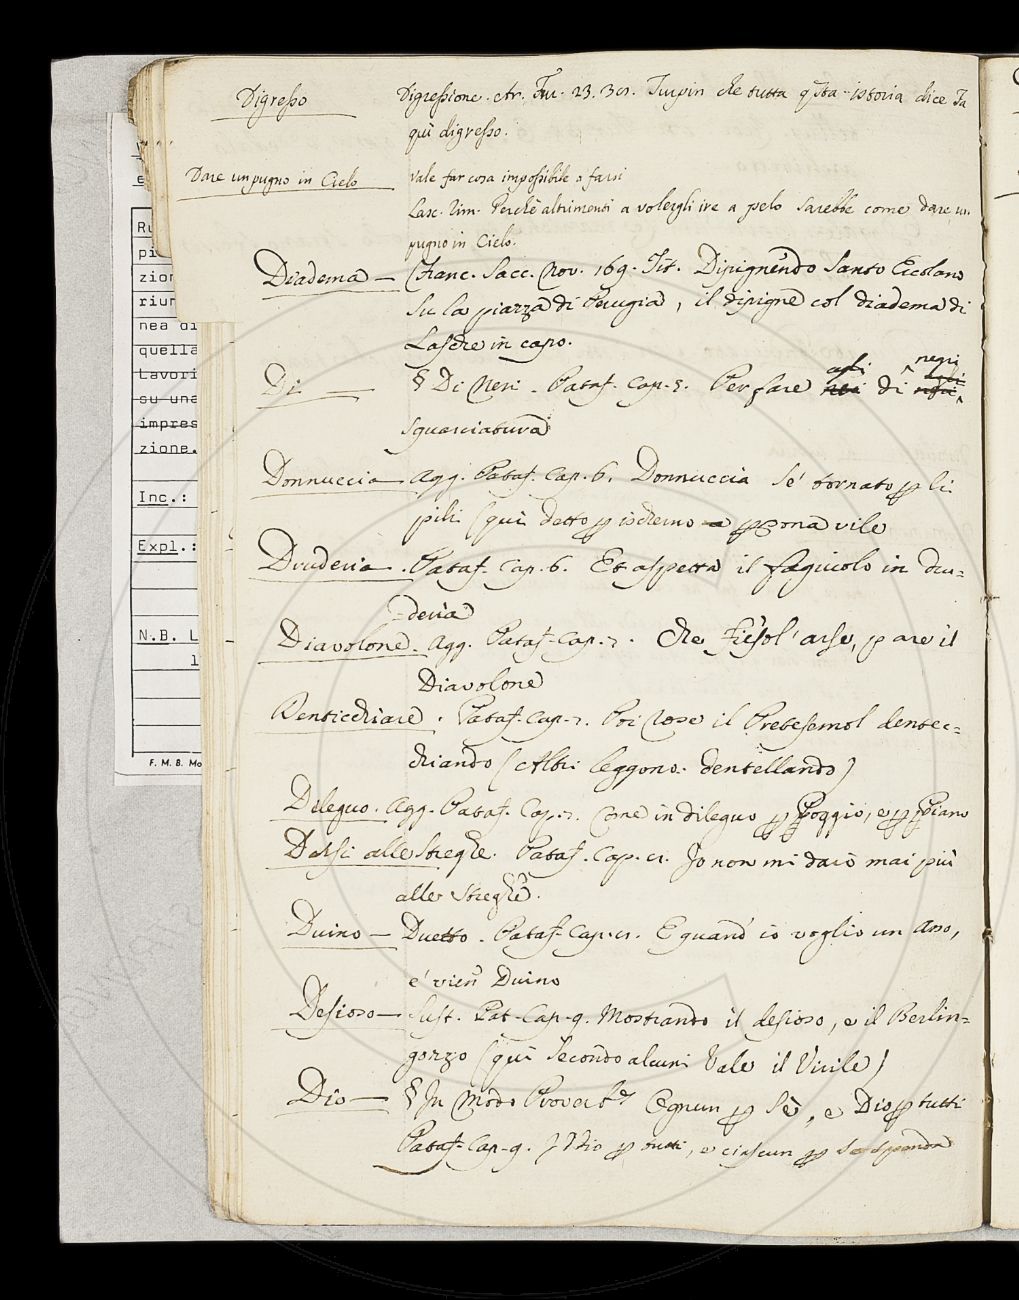 Digresso Digressione. Ar. Fur. 23. 38. Turpin che tutta q.sta istoria dice fa
quì digresso.
Dare un pugno in Cielo vale far cosa impossibile a farsi
Lasc. rim. Perchè altrimenti a volergli ire a pelo sarebbe come dare un
pugno in Cielo.
Diadema — Franc. Sacc. Nov. 169. Tit. Dipignendo Santo Ercolano
su la piazza di Perugia, il dipigne col diadema di
Lasche in capo.
Di — § Di Neri. Pataf. Cap. 5. Per fare di negri
squarciatura
Donnuccia — agg. Pataf. Cap. 6. Donnuccia se' tornato p li
pili (quì detto p ischerno a psona vile
Druderia. Pataf. Cap. 6. Et aspetta il fagiuolo in dru=
=deria
Diavolone. Agg. Pataf. Cap. 7. Che Fiesol' arse, pare il
Diavolone
Denticchiare. Pataf. Cap. 7. Poi rose il Pretesemol dentec=
chiando (Altri leggono: dentellando)
Dileguo. Agg. Pataf. Cap. 7. Come in dileguo p Poggio, e p Piano
Darsi alle streghe. Pataf. Cap. 8. Io non mi darò mai più
alle streghe.
Duino — Duetto. Pataf. Cap. 8. E quand' io voglio un Asso,
e' vien Duino
Desioso — Sust. Pat. Cap. 9. Mostrando il desioso, e il Berlin=
gozzo (quì secondo alcuni vale il Virile)
Dio — § In Modo Proverb.e Ognun p sè, e Dio p tutti
Pataf. Cap. 9. Dio p tutti, e ciascun p se spanda
Ru
pi
zion
riun
nea di
quella
Lavori
su una
impres
zione.
Inc.:
Expl.:
N.B. L
1
F. M. B. Mo